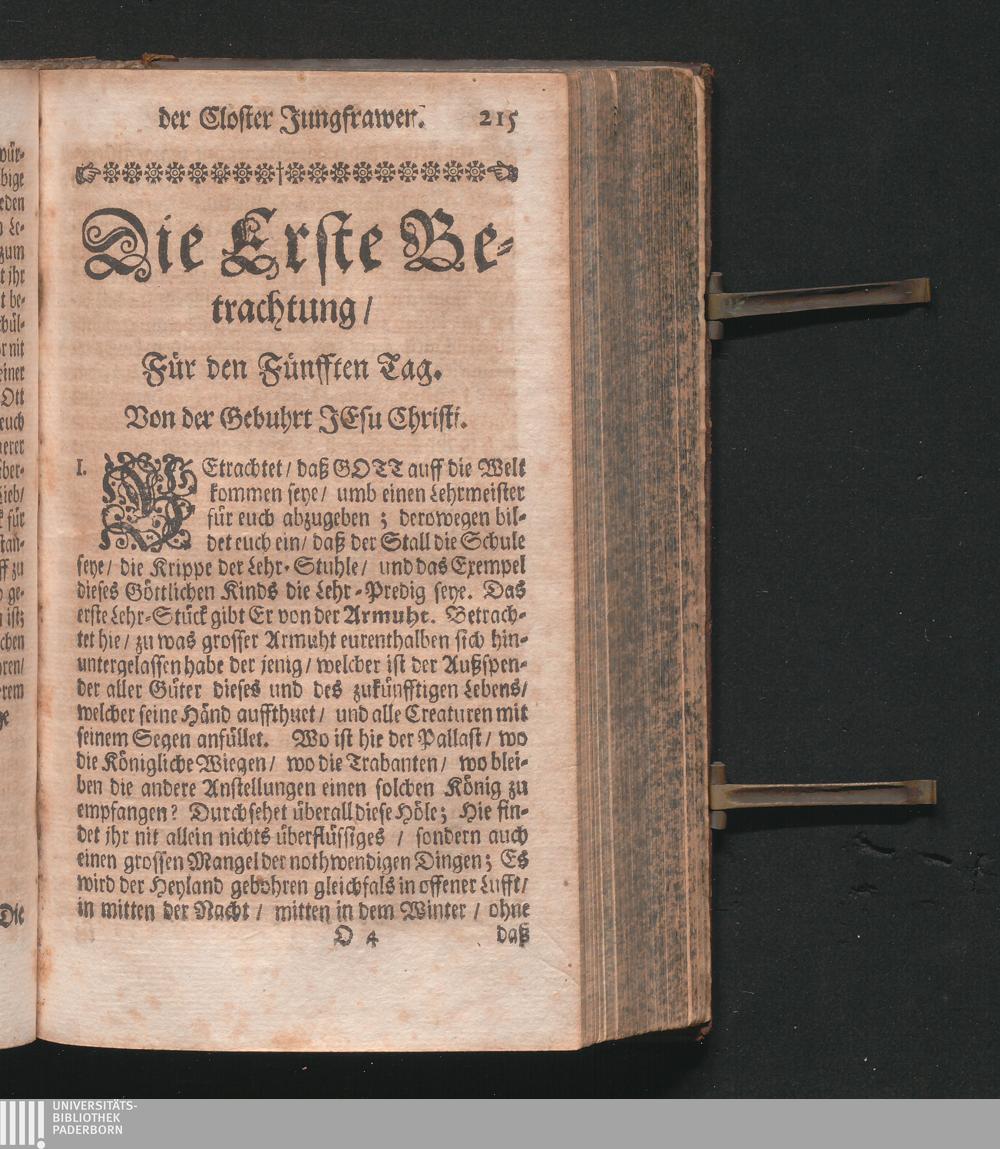 der Closter Jungfrawen. 215
Die Erste Be-
trachtung /
Für den Fünfften Tag.
Von der Gebuhrt JEsu Christi.
I. BEtrachtet / daß GOTT auff die Welt
kommen seye / umb einen Lehrmeister
für euch abzugeben ; derowegen bil-
det euch ein / daß der Stall die Schule
seye / die Krippe der Lehr-Stuhle / und das Exempel
dieses Göttlichen Kinds die Lehr-Predig seye. Das
erste Lehr-Stück gibt Er von der Armuht. Betrach-
tet hie / zu was grosser Armuht eurenthalben sich hin-
untergelassen habe der jenig / welcher ist der Außspen-
der aller Güter dieses und des zukünfftigen Lebens /
welcher seine Händ auffthuet / und alle Creaturen mit
seinem Segen anfüllet. Wo ist hie der Pallast / wo
die Königliche Wiegen / wo die Trabanten / wo blei-
ben die andere Anstellungen einen solchen König zu
empfangen? Durchsehet überall diese Höle; Hie fin-
det jhr nit allein nichts überflüssiges / sondern auch
einen grossen Mangel der nothwendigen Dingen; Es
wird der Heyland gebohren gleichfals in offener Lufft /
in mitten der Nacht / mitten in dem Winter / ohne
O 4 daß
wür-
bige
eden
Le-
zum
t jhr
t be-
chül-
r nit
einer
Ott
euch
erer
über-
Lieb/
für
stan-
ff zu
ge-
ist;
chen
ren/
erem
ge
Die
UNIVERSITÄTS-
BIBLIOTHEK
PADERBORN